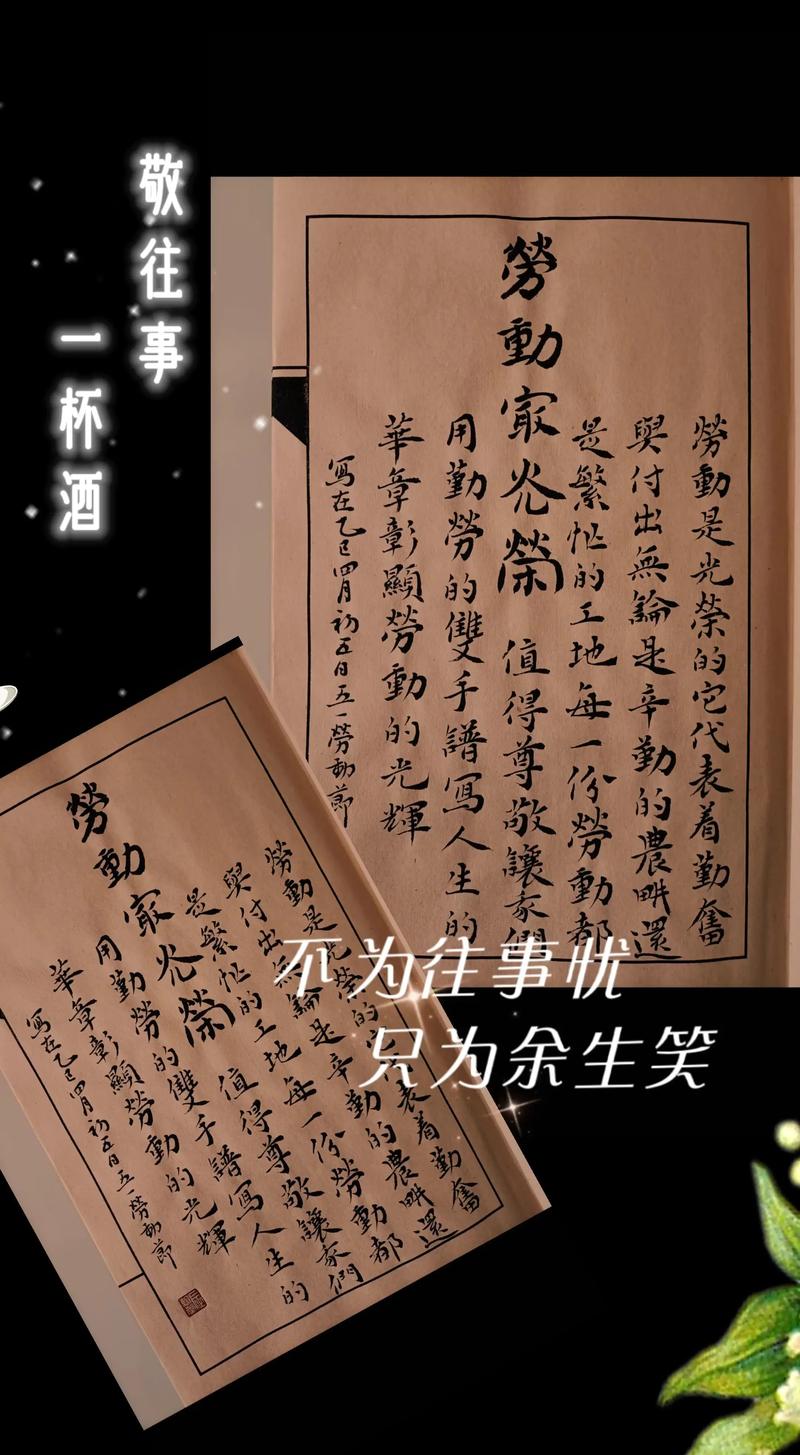 敬往事
一杯酒
勞動是光榮的它代表着勤奮
與付出無論是辛勤的農畊還
是繁忙的工地每一份勞動都
勞動冣光榮 值得尊敬讓家們
用勤勞的雙手譜寫人生的
華章彰顯勞動的光輝
寫在乙巳四月初五日五一勞動節
不为往事忧
只为余生笑
勞動是光榮的它代表着勤奮
與付出無論是辛勤的農畊還
是繁忙的工地每一份勞動都
勞動冣光榮 值得尊敬讓家們
用勤勞的雙手譜寫人生的
華章彰顯勞動的光輝
寫在乙巳四月初五日五一勞動節